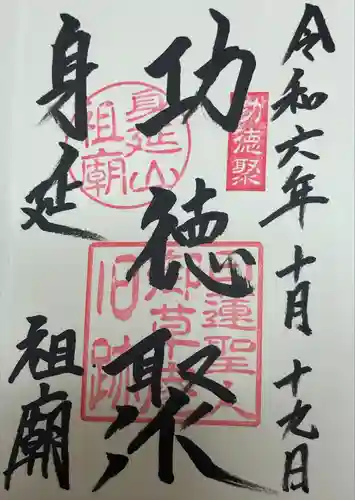 令和六年十月十九日
功徳聚
身延
祖廟
功徳聚
身延山
祖廟
日蓮聖人
御草庵
旧跡